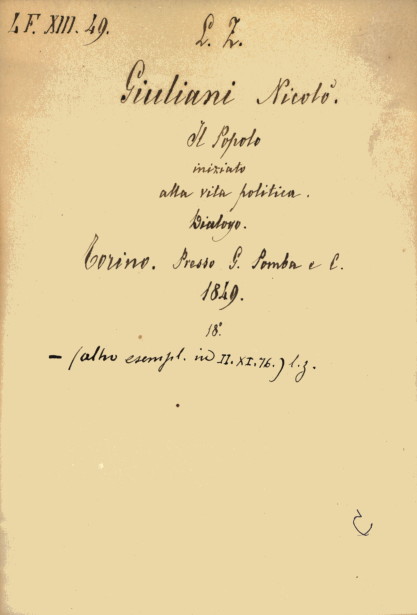 LF. XIII. 49.
L. Z.
Giuliani Nicolò.
Il Popolo
iniziato
alla vita politica.
Dialogo.
Torino. Presso G. Pomba e C.
1849.
18°.
— (altro esempl. in II. XI. 76.) l. z.